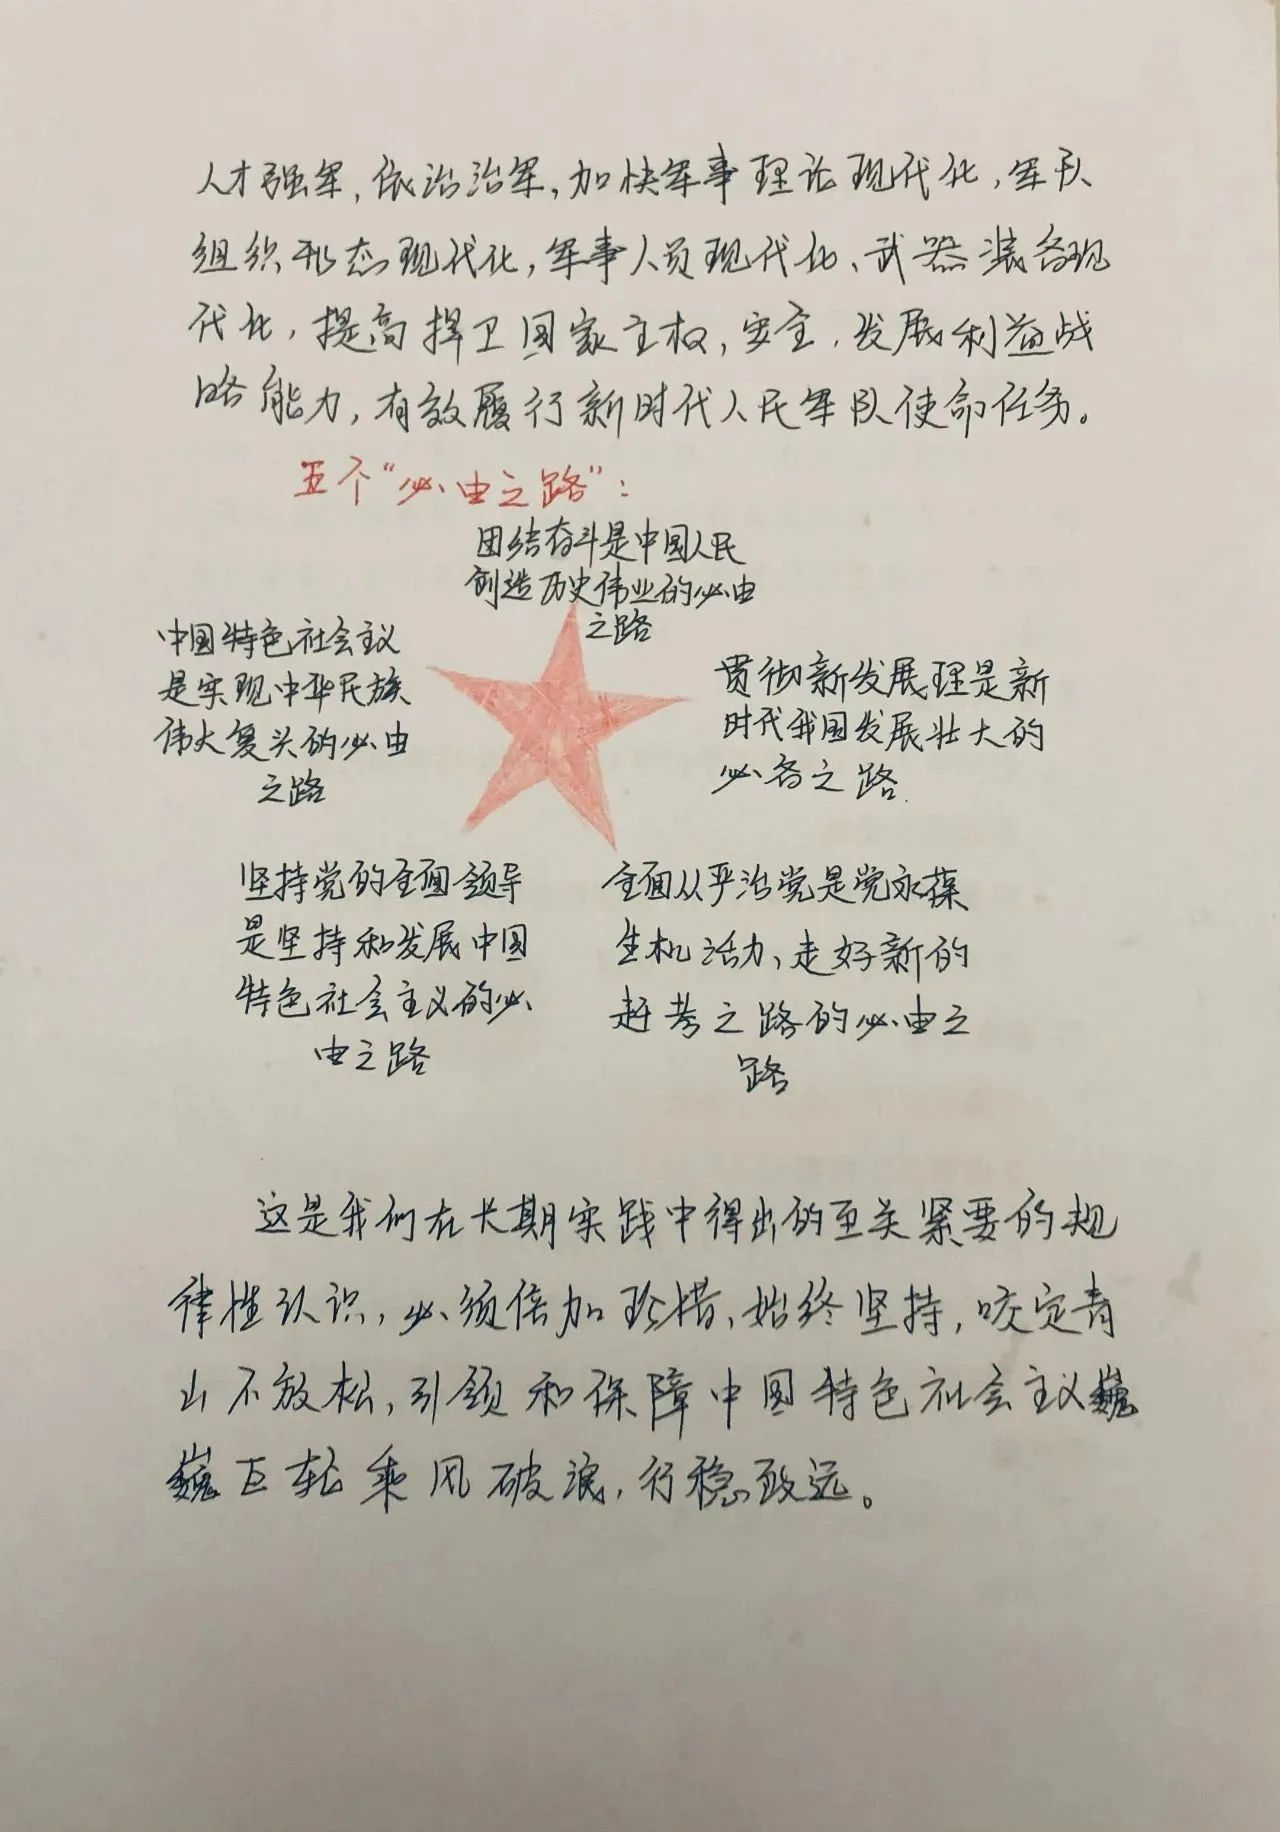 人才强军，依治治军，加快军事理论现代化，军队
组织形态现代化，军事人员现代化、武器装备现
代化，提高捍卫国家主权，安全，发展利益战
略能力，有效履行新时代人民军队使命任务。
五个“必由之路”：
团结奋斗是中国人民
创造历史伟业的必由
之路
中国特色社会主义
是实现中华民族
伟大复兴的必由
之路
贯彻新发展理是新
时代我国发展壮大的
必备之路.
坚持党的全面领导
是坚持和发展中国
特色社会主义的必
由之路
全面从严治党是党永葆
生机活力、走好新的
赶考之路的必由之
路
这是我们在长期实践中得出的至关紧要的规
律性认识，必须倍加珍惜、始终坚持，咬定青
山不放松，引领和保障中国特色社会主义巍
巍巨轮乘风破浪，行稳致远。